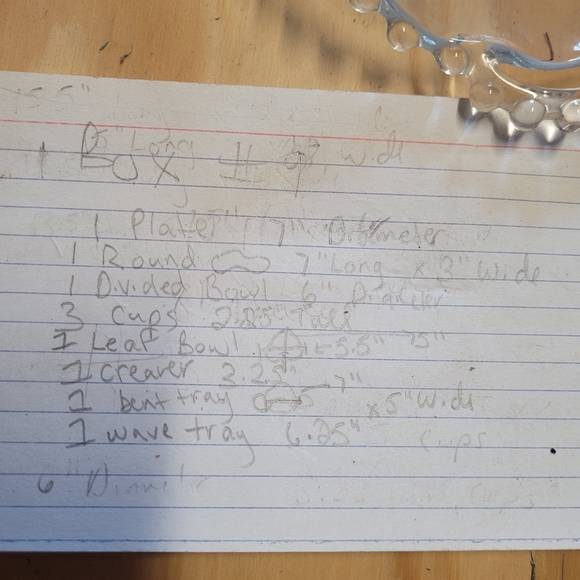 5.5"
Long
1 Box # Wide
1 Plate 7" Diameter
1 Round 7" Long x 3" Wide
1 Divided Bowl 6" Diameter
3 Cups 2.25" Tall
1 Leaf Bowl 5.5" 75"
1 creamer 3.25"
1 bent tray 7" x 5" Wide
1 wave tray 6.25" Cups
6"